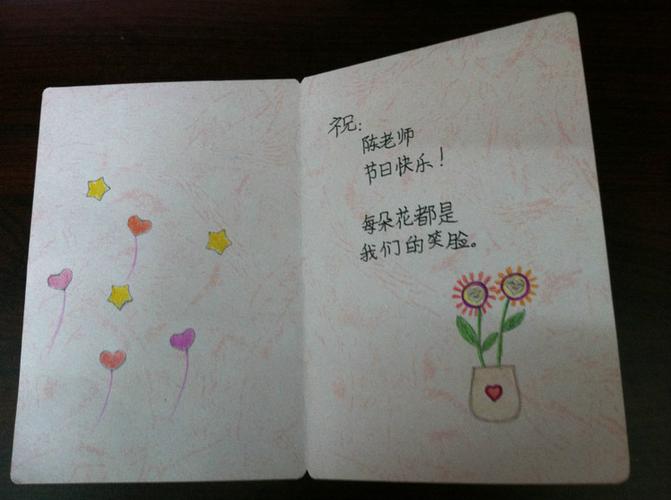 祝:
陈老师
节日快乐!
每朵花都是
我们的笑脸。